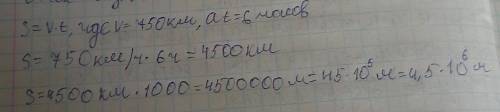 S=v·t, где v=750км, а t=6 часов
S=750км/ч·6ч=4500км
S=4500км·1000=4500000м=45·10⁵м=4,5·10⁶м